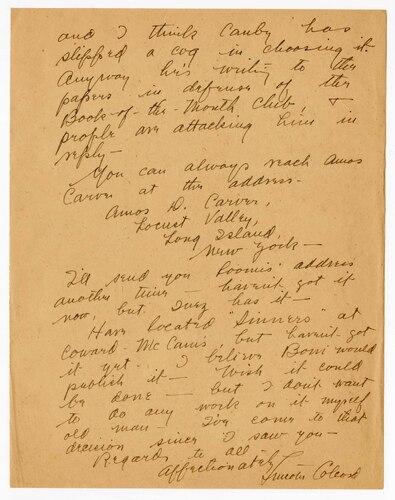 and I think Canby has
slipped a cog in choosing it.
Anyway he's writing to the
papers in defense of the
Book-of-the-Month Club, +
people are attacking him in
reply—
You can always reach Amos
Carver at this address—
Amos D. Carver,
Locust Valley,
Long Island,
New York—
I'll send you Loomis' address
another time — haven't got it
now, but Inez has it—
Have located "Sinners" at
Coward-McCann's but haven't got
it yet. I believe Boni would
publish it — Wish it could
be done — but I don't want
to do any work on it myself
old man — I've come to that
decision since I saw you—
Regards to all
Affectionately
Lincoln Colcord